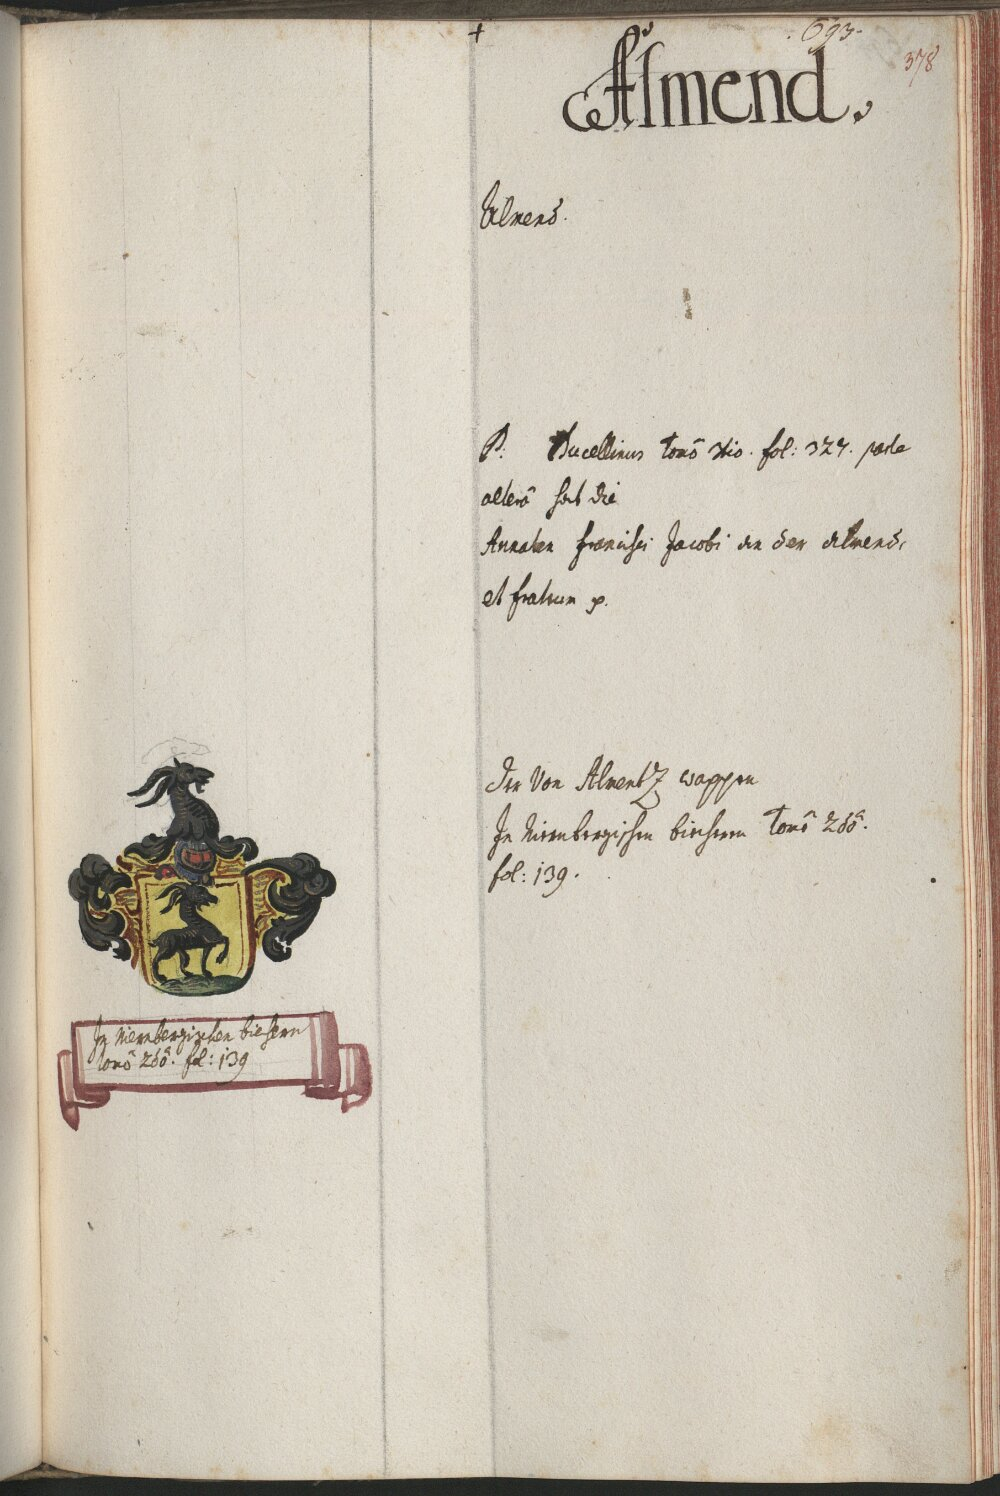 693.
378
Almend.
Almend.
P. Bucellinus tomo 3tio. fol: 327. parte
altera hat die
Annaten Francisci Jacobi an der Almend,
et fratrum p.
Der Von Almentz wappen
In Niernbergischen biechern tomo 2do.
fol: 139.
In Niernbergischen biechern
tomo 2do. fol: 139